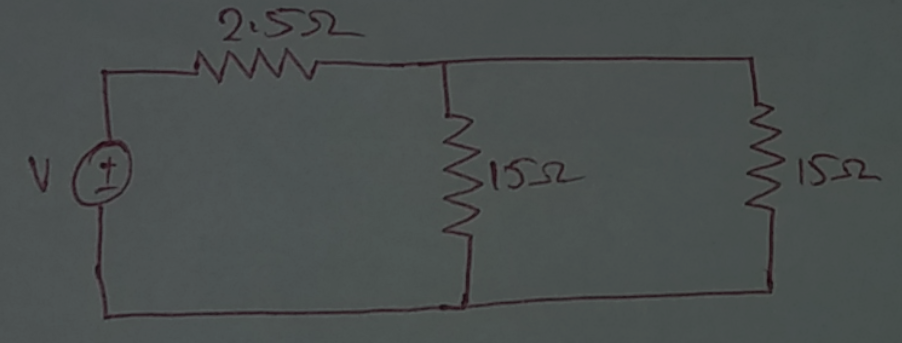 2.5Ω
V
+
-
15Ω
15Ω